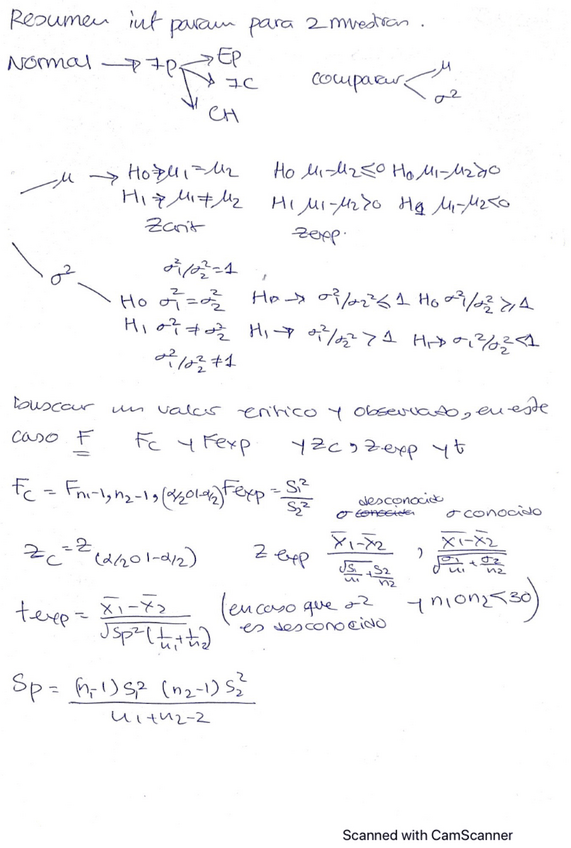 Resumen int param para 2 muestras.
Normal → IP → EP
IC
CH
comparar < μ
σ²
μ → H0 → μ1 = μ2 H0 μ1-μ2 ≤ 0 H0 μ1-μ2 ≥ 0
H1 → μ1 ≠ μ2 H1 μ1-μ2 > 0 Ha μ1-μ2 < 0
Zcrit Zexp.
σ1²/σ2² = 1
σ² H0 σ1² = σ2² H0 → σ1²/σ2² ≤ 1 H0 σ1²/σ2² ≥ 1
H1 σ1² ≠ σ2² H1 → σ1²/σ2² > 1 H1 → σ1²/σ2² < 1
σ1²/σ2² ≠ 1
buscar un valor critico y observado, en este
caso F Fc y Fexp y Zc, Zexp y t
Fc = F n1-1, n2-1, (α/2 o 1-α/2) Fexp = S1²/S2²
desconocido
σ conocida σ conocido
Zc = Z (α/2 o 1-α/2) Zexp (x̄1-x̄2)/√(S1/n1 + S2/n2) , (x̄1-x̄2)/√(σ1/n1 + σ2/n2)
texp = (x̄1-x̄2)/√(Sp²(1/n1 + 1/n2)) (en caso que σ² y n1 o n2 < 30)
es desconocido
Sp = (n1-1)S1² (n2-1)S2² / n1+n2-2
Scanned with CamScanner